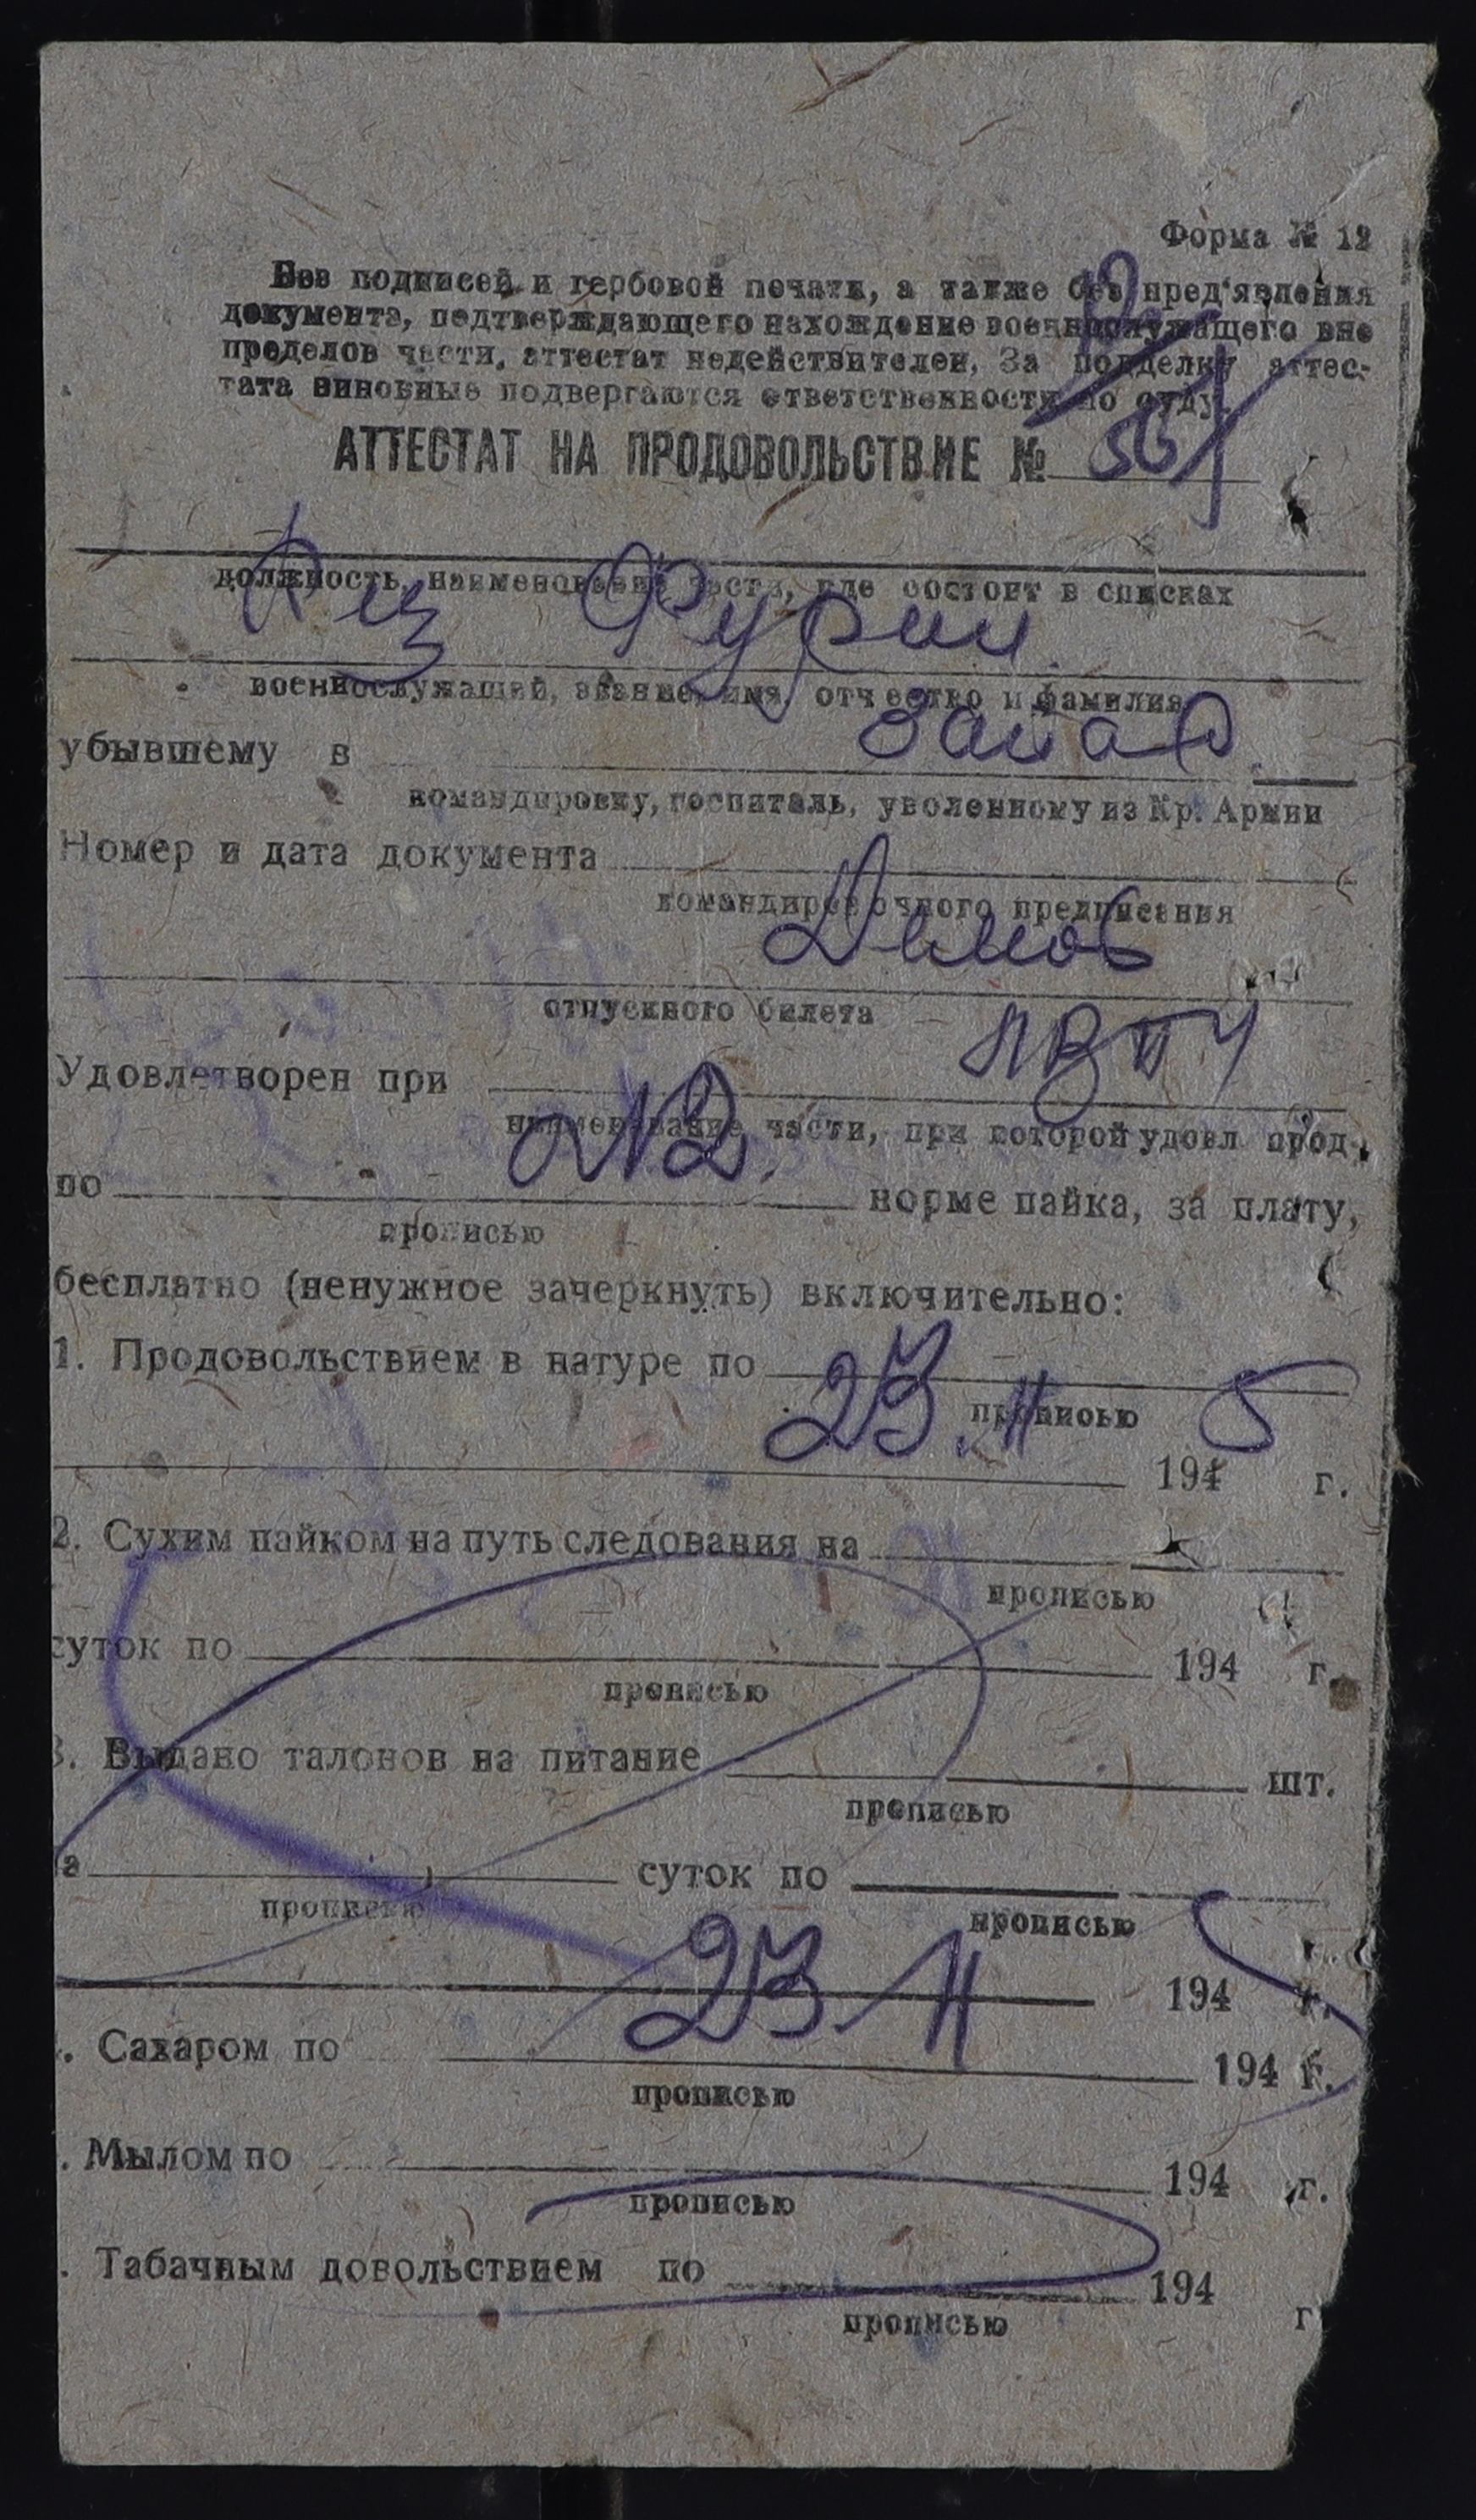 Форма № 12
Без подписей и гербовой печати, а также без пред'явления
документа, подтверждающего нахождение военнослужащего вне
пределов части, аттестат недействителен. За подделку аттес-
тата виновные подвергаются ответственности по суду.
АТТЕСТАТ НА ПРОДОВОЛЬСТВИЕ №
должность, наименование части, где состоит в списках
военнослужащий, звание, имя, отчество и фамилия
убывшему в запас
командировку, госпиталь, уволенному из Кр. Армии
Номер и дата документа
командировочного предписания
отпускного билета
Удовлетворен при
наименование части, при которой удовл прод.
по №2. норме пайка, за плату,
прописью
бесплатно (ненужное зачеркнуть) включительно:
1. Продовольствием в натуре по 23. II 5
прописью
194 г.
2. Сухим пайком на путь следования на
прописью
суток по 194 г.
прописью
3. Выдано талонов на питание шт.
прописью
а суток по
прописью прописью
194 г.
. Сахаром по 23 II 194 г.
прописью
. Мылом по 194 г.
прописью
. Табачным довольствием по 194 г
прописью